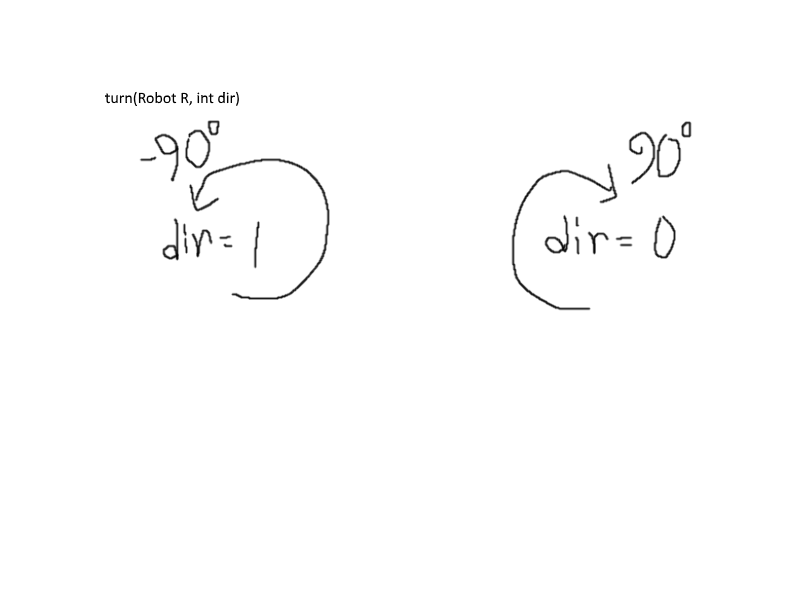 turn(Robot R, int dir)
-90°
dir = 1
90°
dir = 0